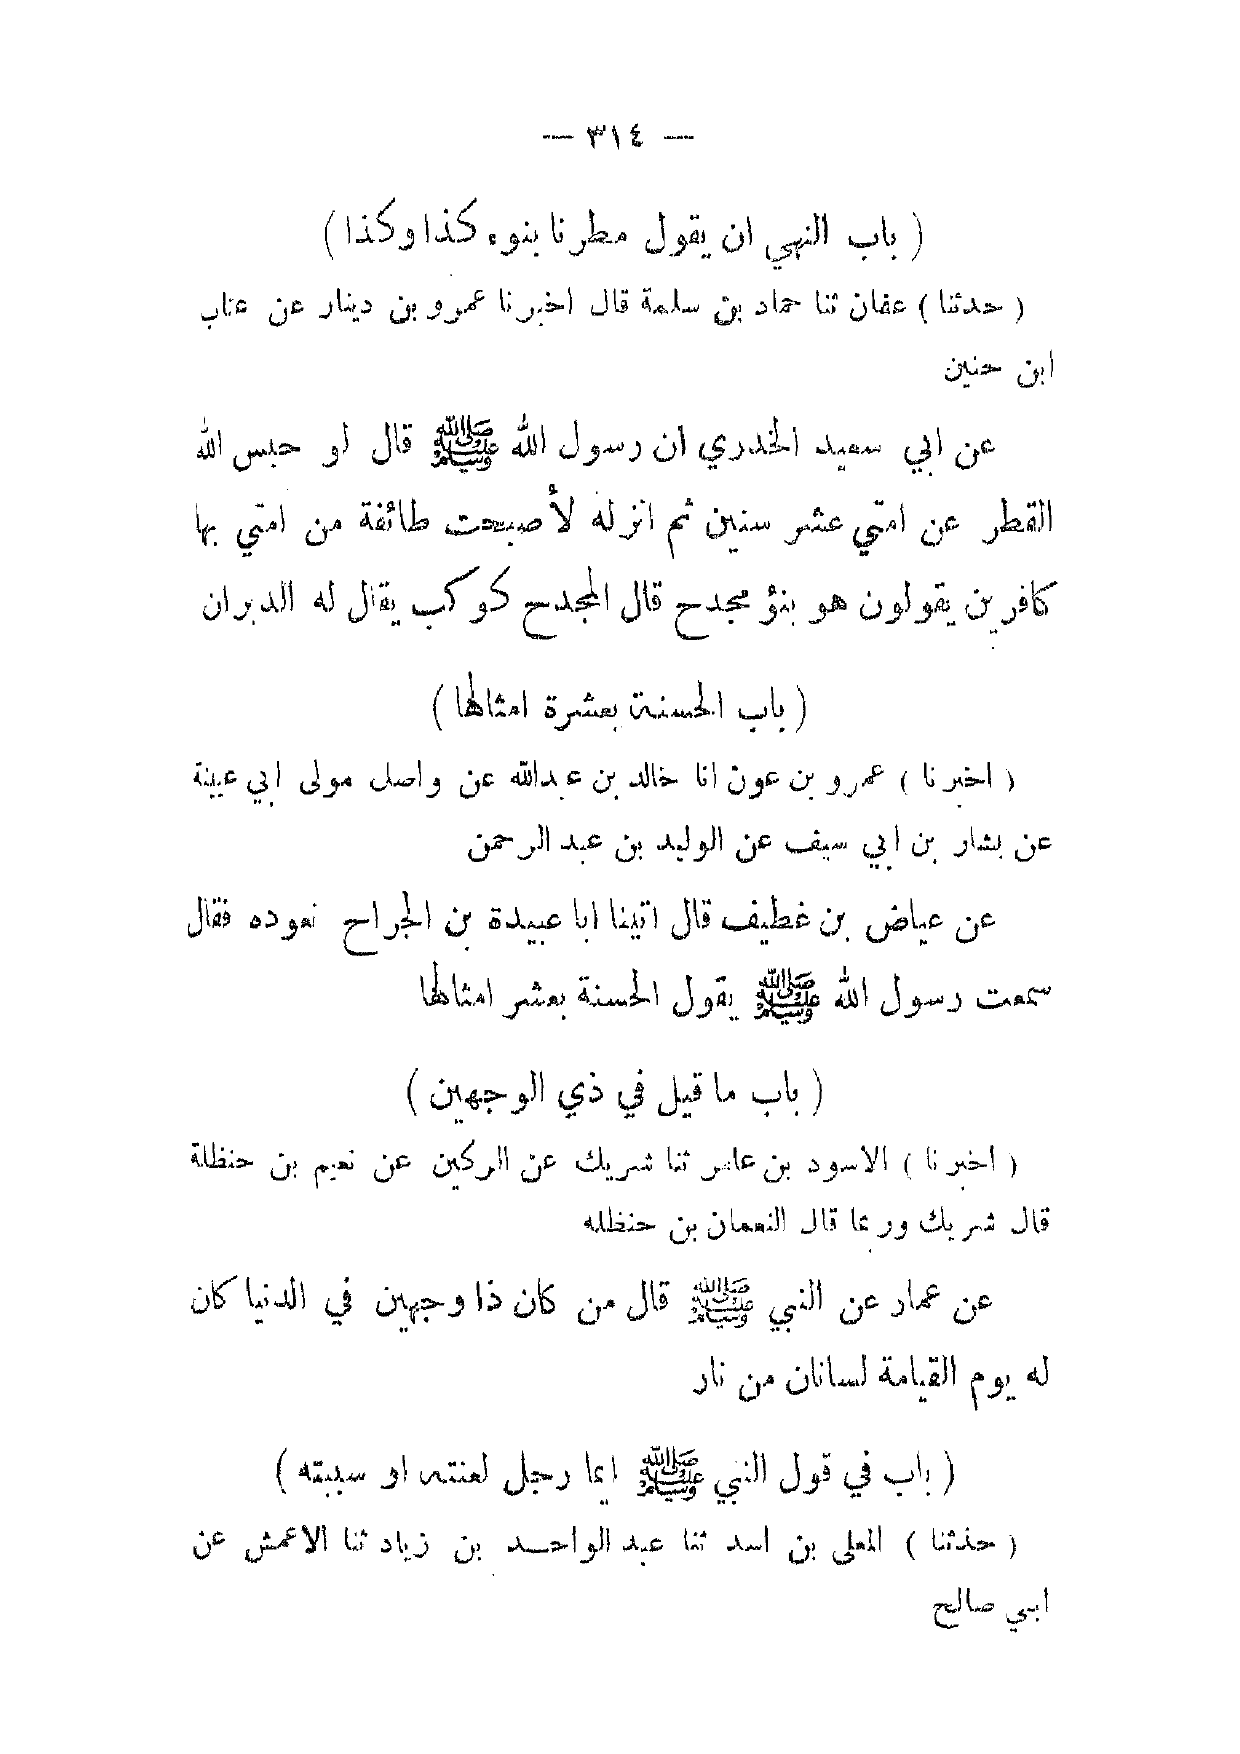 — ٣١٤ —
( باب النهي ان يقول مطرنا بنوء كذا وكذا )
( حدثنا ) عفان ثنا حماد بن سلمة قال اخبرنا عمرو بن دينار عن عتاب
ابن حنين
عن ابي سعيد الخدري ان رسول الله ﷺ قال لو حبس الله
القطر عن امتي عشر سنين ثم انزله لأصبحت طائفة من امتي بها
كافرين يقولون هو بنؤ مجدح قال المجدح كوكب يقال له الدبران
( باب الحسنة بعشرة امثالها )
( اخبرنا ) عمرو بن عون انا خالد بن عبدالله عن واصل مولى ابي عيينة
عن بشار بن ابي سيف عن الوليد بن عبد الرحمن
عن عياض بن غطيف قال اتينا ابا عبيدة بن الجراح نعوده فقال
سمعت رسول الله ﷺ يقول الحسنة بعشر امثالها
( باب ما قيل في ذي الوجهين )
( اخبرنا ) الاسود بن عامر ثنا شريك عن الركين عن نعيم بن حنظلة
قال شريك وربما قال النعمان بن حنظله
عن عمار عن النبي ﷺ قال من كان ذا وجهين في الدنيا كان
له يوم القيامة لسانان من نار
( باب في قول النبي ﷺ ايما رجل لعنته او سببته )
( حدثنا ) المعلى بن اسد ثنا عبد الواحد بن زياد ثنا الاعمش عن
ابي صالح